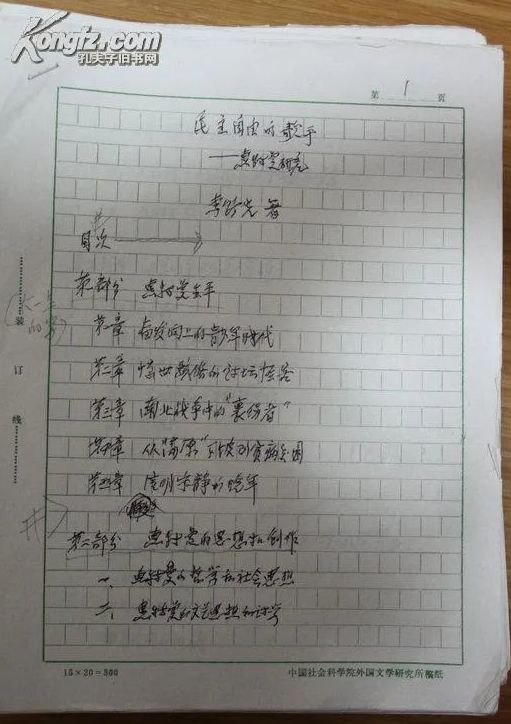 Kongfz.com
孔夫子旧书网
第 1 页
民主自由的歌手
——惠特曼研究
李野光 著
目次
第一部分 惠特曼生平
第一章 奋发向上的青少年时代
第二章 愤世骇俗的诗坛怪客
第三章 南北战争中的“裹伤者”
第四章 从“高原”下坡到贫病交困
第五章 光明宁静的晚年
第二部分 惠特曼的思想和创作
一、惠特曼的哲学和社会思想
二、惠特曼的文艺思想和诗学
装
订
线
15×20=300
中国社会科学院外国文学研究所稿纸